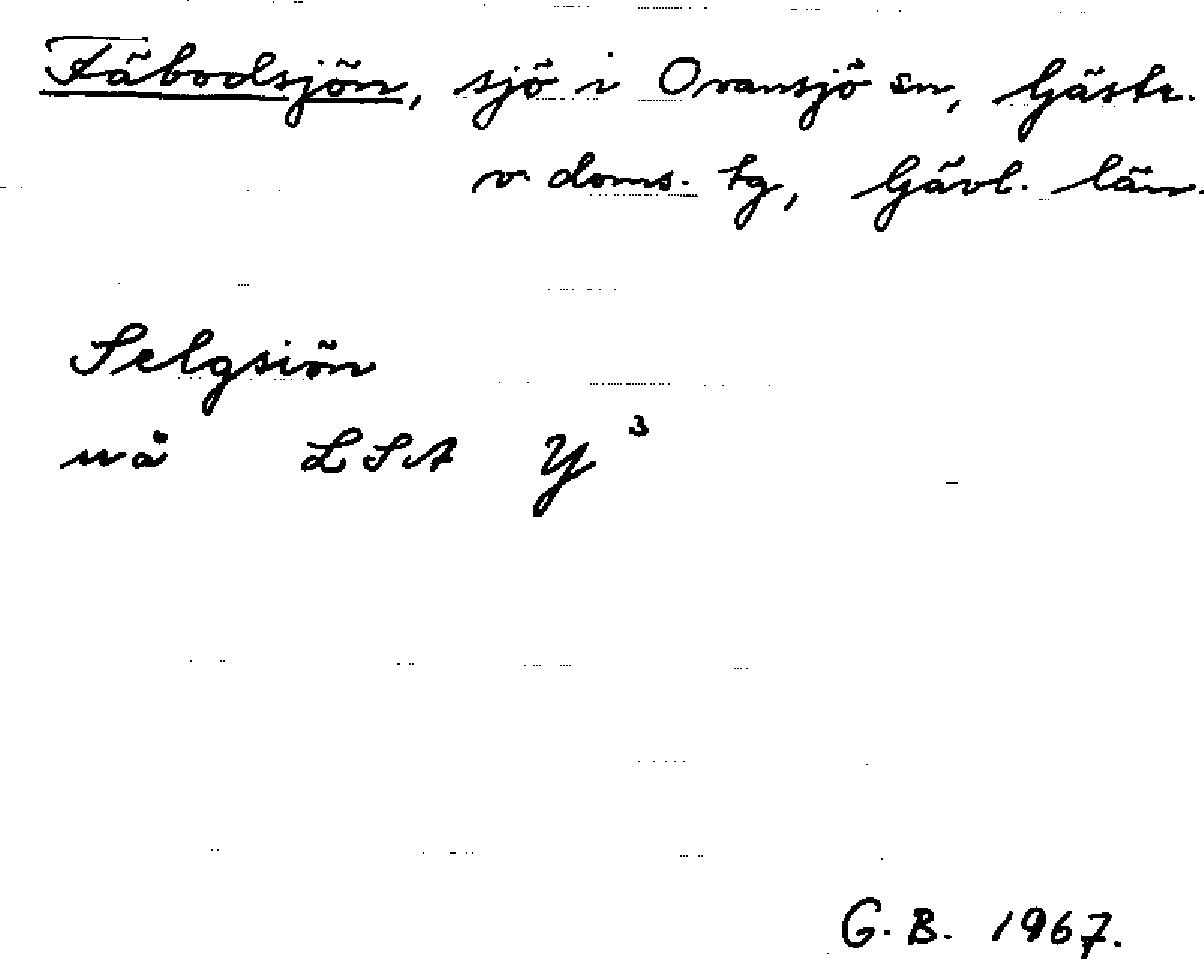 Fäbodsjön, sjö i Ovansjö sn, Gästr.
v. doms. tg, Gävl. län.
Selgsiön
uå LSA Y³
G.B. 1967.